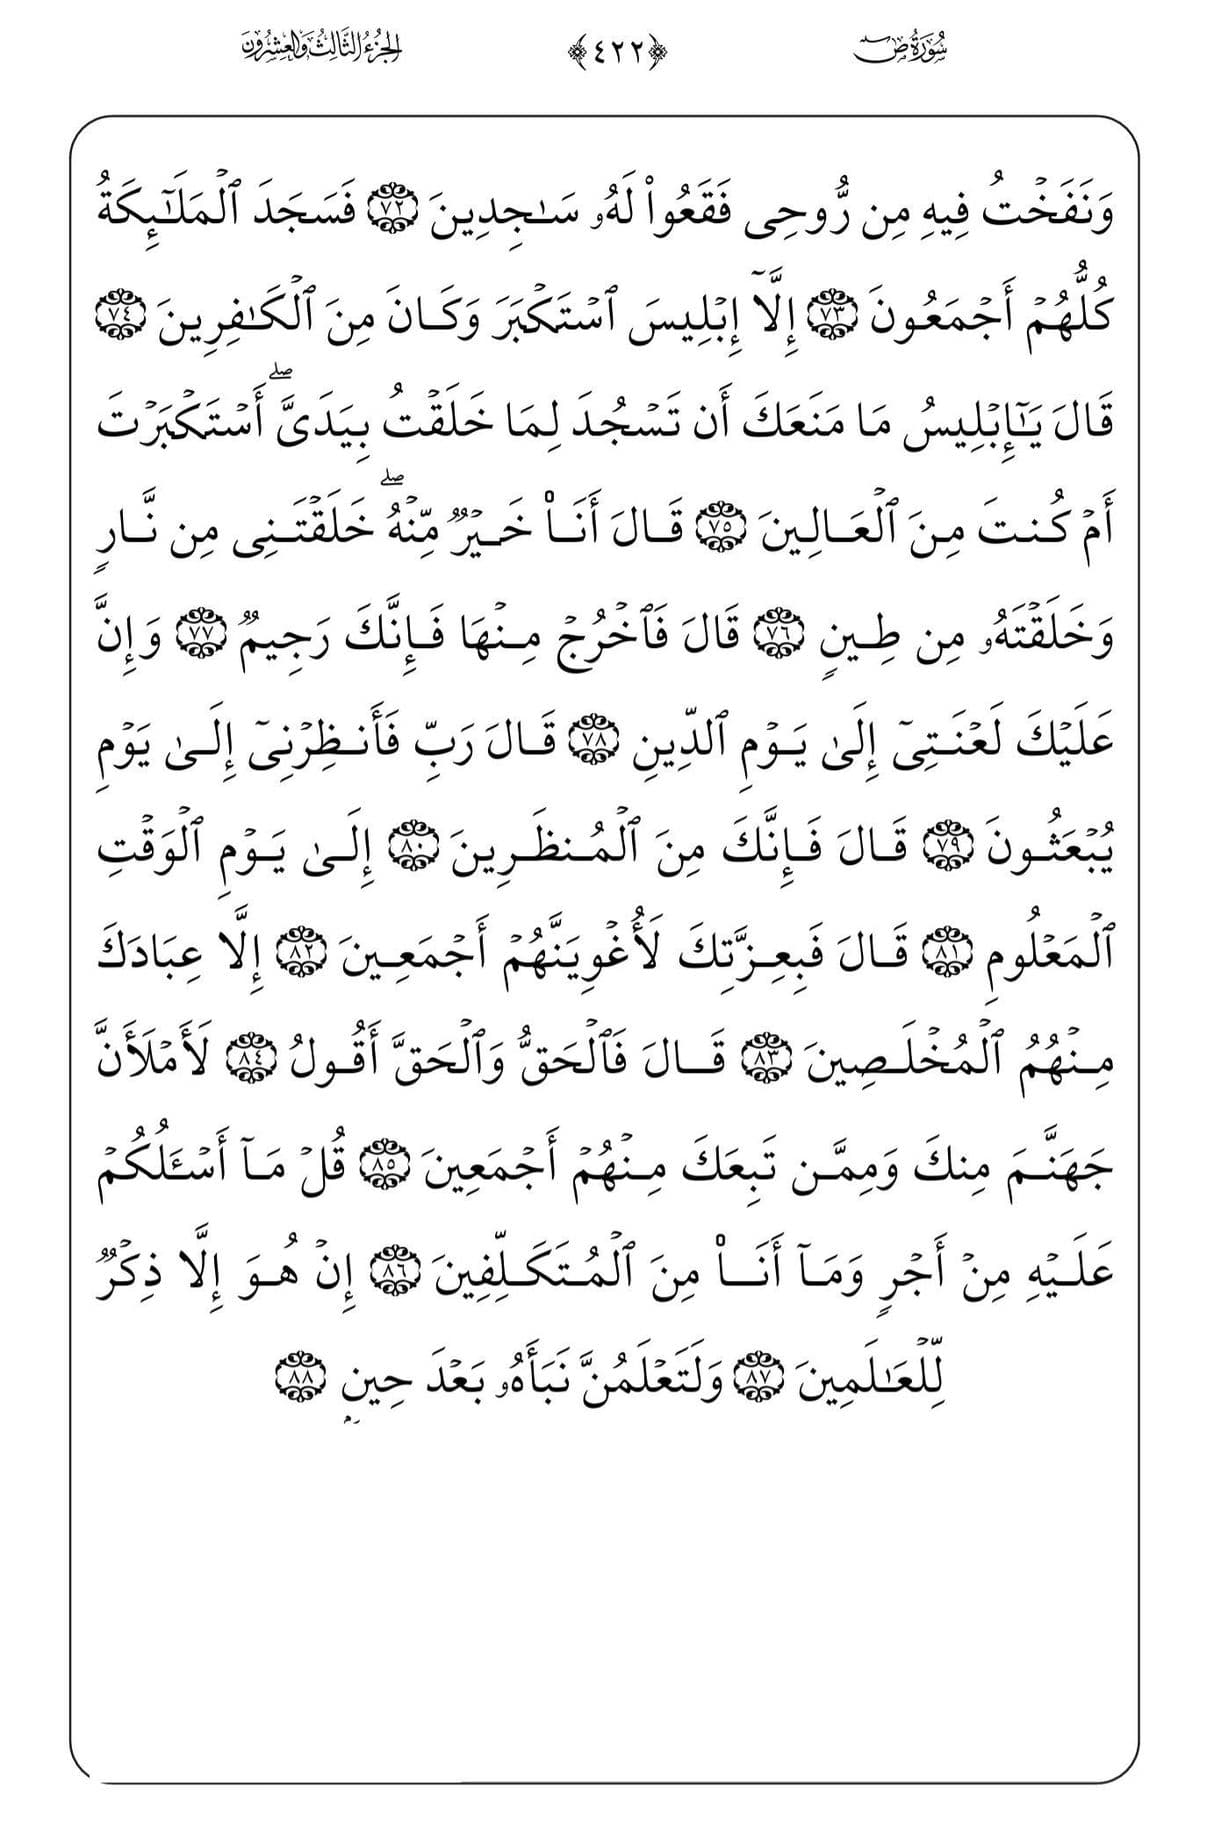 سُورَةُ صٓ ﴿٤٢٢﴾ الجُزْءُ الثَّالِثُ وَالعِشْرُونَ
وَنَفَخْتُ فِيهِ مِن رُّوحِى فَقَعُوا۟ لَهُۥ سَـٰجِدِينَ ٧٢ فَسَجَدَ ٱلْمَلَـٰٓئِكَةُ
كُلُّهُمْ أَجْمَعُونَ ٧٣ إِلَّآ إِبْلِيسَ ٱسْتَكْبَرَ وَكَانَ مِنَ ٱلْكَـٰفِرِينَ ٧٤
قَالَ يَـٰٓإِبْلِيسُ مَا مَنَعَكَ أَن تَسْجُدَ لِمَا خَلَقْتُ بِيَدَىَّ ۖ أَسْتَكْبَرْتَ
أَمْ كُنتَ مِنَ ٱلْعَالِينَ ٧٥ قَالَ أَنَا۠ خَيْرٌ مِّنْهُ ۖ خَلَقْتَنِى مِن نَّارٍ
وَخَلَقْتَهُۥ مِن طِينٍ ٧٦ قَالَ فَٱخْرُجْ مِنْهَا فَإِنَّكَ رَجِيمٌ ٧٧ وَإِنَّ
عَلَيْكَ لَعْنَتِىٓ إِلَىٰ يَوْمِ ٱلدِّينِ ٧٨ قَالَ رَبِّ فَأَنظِرْنِىٓ إِلَىٰ يَوْمِ
يُبْعَثُونَ ٧٩ قَالَ فَإِنَّكَ مِنَ ٱلْمُنظَرِينَ ٨٠ إِلَىٰ يَوْمِ ٱلْوَقْتِ
ٱلْمَعْلُومِ ٨١ قَالَ فَبِعِزَّتِكَ لَأُغْوِيَنَّهُمْ أَجْمَعِينَ ٨٢ إِلَّا عِبَادَكَ
مِنْهُمُ ٱلْمُخْلَصِينَ ٨٣ قَالَ فَٱلْحَقُّ وَٱلْحَقَّ أَقُولُ ٨٤ لَأَمْلَأَنَّ
جَهَنَّمَ مِنكَ وَمِمَّن تَبِعَكَ مِنْهُمْ أَجْمَعِينَ ٨٥ قُلْ مَآ أَسْـَٔلُكُمْ
عَلَيْهِ مِنْ أَجْرٍ وَمَآ أَنَا۠ مِنَ ٱلْمُتَكَلِّفِينَ ٨٦ إِنْ هُوَ إِلَّا ذِكْرٌ
لِّلْعَـٰلَمِينَ ٨٧ وَلَتَعْلَمُنَّ نَبَأَهُۥ بَعْدَ حِينٍۭ ٨٨